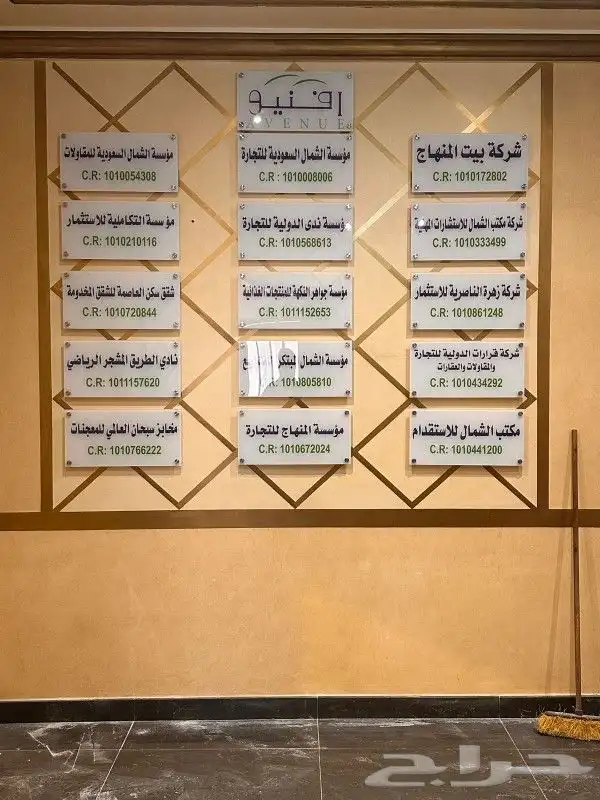 افنيو
AVENUE
شركة بيت المنهاج
C.R: 1010172802
مؤسسة الشمال السعودية للتجارة
C.R : 1010008006
مؤسسة الشمال السعودية للمقاولات
C.R: 1010054308
شركة مكتب الشمال للاستشارات المهنية
C.R: 1010333499
مؤسسة ندى الدولية للتجارة
C.R: 1010568613
مؤسسة التكاملية للاستثمار
C.R: 1010210116
شركة زهرة الناصرية للاستثمار
C.R: 1010861248
مؤسسة جواهر النكهة للمنتجات الغذائية
C.R: 1011152653
شقق سكن العاصمة للشقق المخدومة
C.R: 1010720844
شركة قرارات الدولية للتجارة
والمقاولات والعقارات
C.R: 1010434292
مؤسسة الشمال المبتكر
C.R: 1010805810
نادي الطريق المشجر الرياضي
C.R: 1011157620
مكتب الشمال للاستقدام
C.R: 1010441200
مؤسسة المنهاج للتجارة
C.R: 1010672024
مخابز سبحان العالمي للمعجنات
C.R: 1010766222
حراج